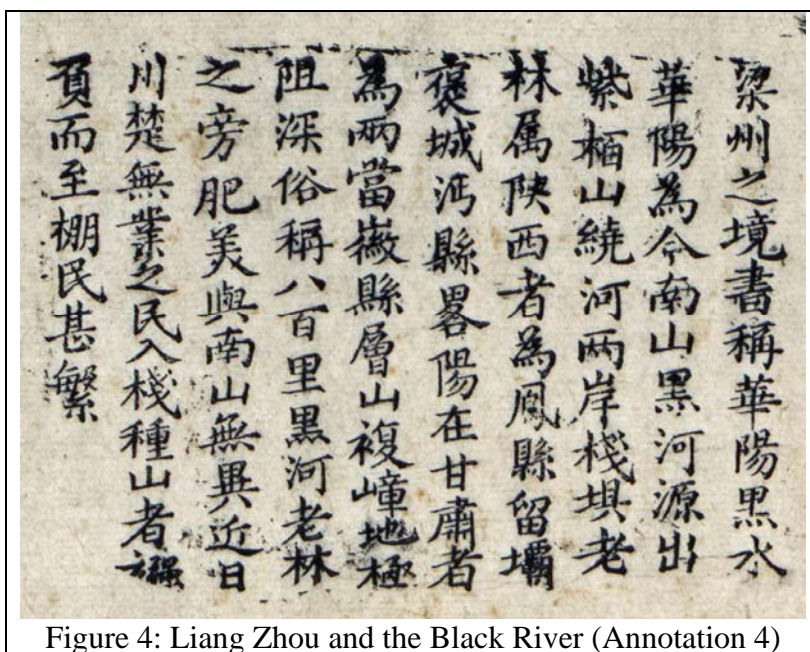 梁州之境書稱華陽黒水
華陽為今南山黒河源出
紫栢山繞河兩岸棧垻老
林属陝西者為鳳縣留壩
褒城沔縣畧陽在甘肅者
為兩當徽縣層山複嶂地極
阻深俗稱八百里黒河老林
之旁肥美與南山無異近日
川楚無業之民入棧種山者襁
負而至棚民甚繁
Figure 4: Liang Zhou and the Black River (Annotation 4)